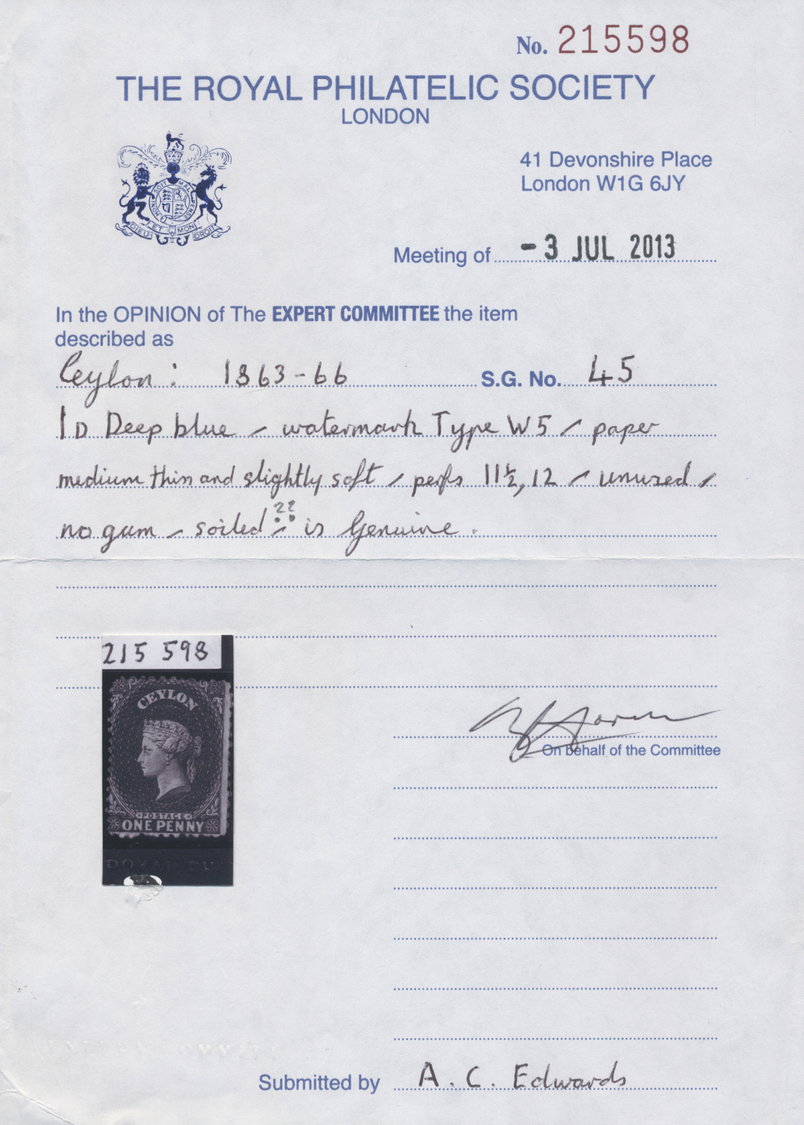 No. 215598
THE ROYAL PHILATELIC SOCIETY
LONDON
41 Devonshire Place
London W1G 6JY
Meeting of - 3 JUL 2013
In the OPINION of The EXPERT COMMITTEE the item
described as
Ceylon: 1863-66 S.G. No. 45
1D Deep blue - watermark Type W5 - paper
medium thin and slightly soft - perfs 11½, 12 - unused -
no gum - soiled :- is Genuine.
215 598
CEYLON
POSTAGE
ONE PENNY
On behalf of the Committee
Submitted by A. C. Edwards